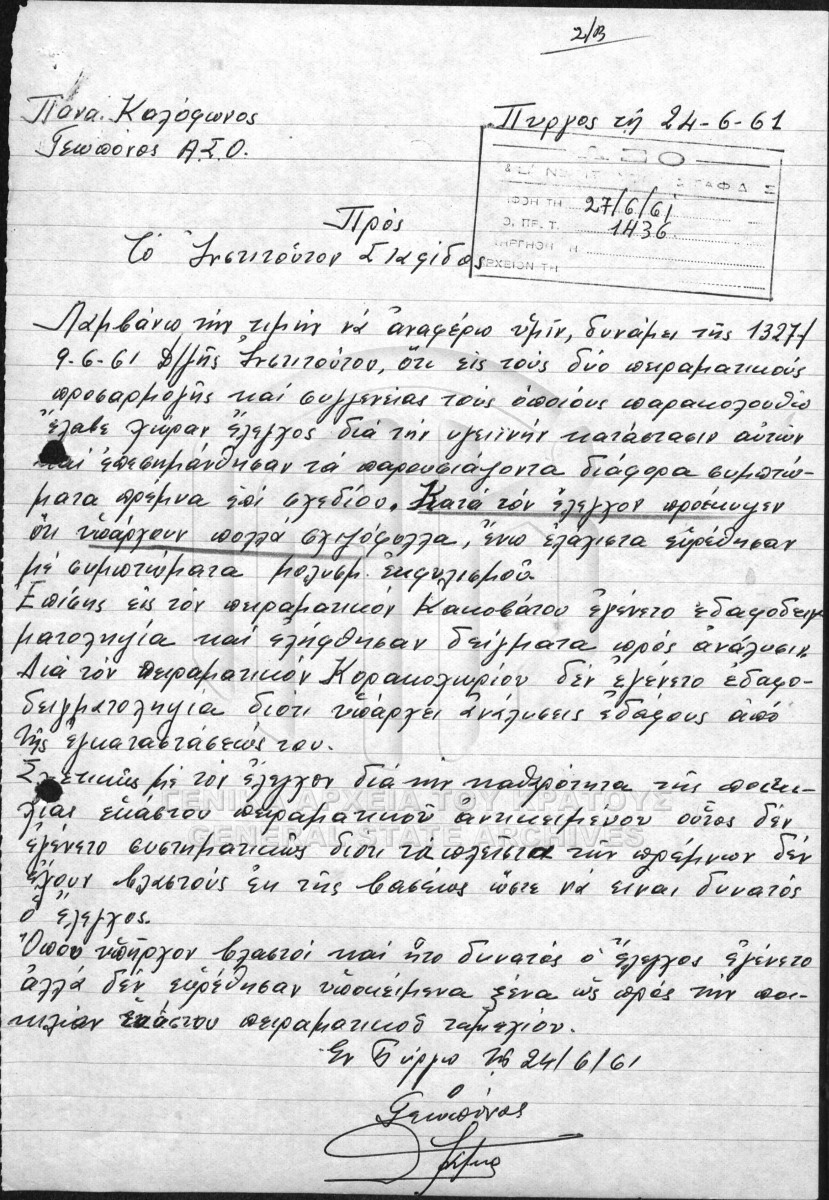 2/β
Πανα. Καλόφωνος
Γεωπόνος Α.Σ.Ο.
Πύργος τῇ 24-6-61
ΑΣΟ
27/6/61
1436
ΑΡΧΕΙΟΝ ΤΗ
Πρός
Τό Ἰνστιτοῦτον Σταφίδος
Λαμβάνω τήν τιμήν νά ἀναφέρω ὑμῖν, δυνάμει τῆς 1327/
9-6-61 Δ/γῆς Ἰνστιτούτου, ὅτι εἰς τούς δύο πειραματικούς
προσαρμογῆς καί συγγενείας τούς ὁποίους παρακολουθῶ
ἔλαβε χώραν ἔλεγχος διά τήν υγειϊνήν κατάστασιν αὐτῶν
καί ἐπεσημάνθησαν τά παρουσιάζοντα διάφορα συμπτώ-
ματα πρέμνα ἐπί σχεδίου. Κατά τόν ἔλεγχον προέκυψεν
ὅτι ὑπάρχουν πολλά σχιζόφυλλα, ἔνω ἐλάχιστα εὑρέθησαν
μέ συμπτώματα μολυσμ. ἐκφυλισμοῦ.
Ἐπίσης εἰς τόν πειραματικόν Κακοβάτου ἐγένετο ἐδαφοδειγ
ματοληψία καί ἐλήφθησαν δείγματα πρός ἀνάλυσιν.
Διά τόν πειραματικόν Κορακοχωρίου δέν ἐγένετο ἐδαφο-
δειγματοληψία διότι ὑπάρχει ἀνάλυσεις ἐδάφους ἀπό
τῆς ἐγκαταστάσεώς του.
Σχετικῶς μέ τόν ἔλεγχον διά τήν καθαρότητα τῆς ποικι-
λίας ἑκάστου πειραματικοῦ ἀντικειμενου οὗτος δέν
ἐγένετο συστηματικῶς διοτι τα πλεῖστα τῶν πρέμνων δέν
ἔχουν βλαστούς ἐκ τῆς βασέως ὥστε νά εἶναι δυνατός
ὁ ἔλεγχος.
Ὁπου ὑπῆρχον βλαστοί καί ἦτο δυνατός ὁ ἔλεγχος ἐγένετο
ἀλλά δέν εὑρέθησαν ὑποκείμενα ξένα ὡς πρός τήν ποι-
κιλίαν ἑκάστου πειραματικοῦ τεμαχίου.
Ἐν Πύργῳ τῇ 24/6/61
Ὁ
Γεωπόνος
ΓΕΝΙΚΑ ΑΡΧΕΙΑ ΤΟΥ ΚΡΑΤΟΥΣ
GENERAL STATE ARCHIVES